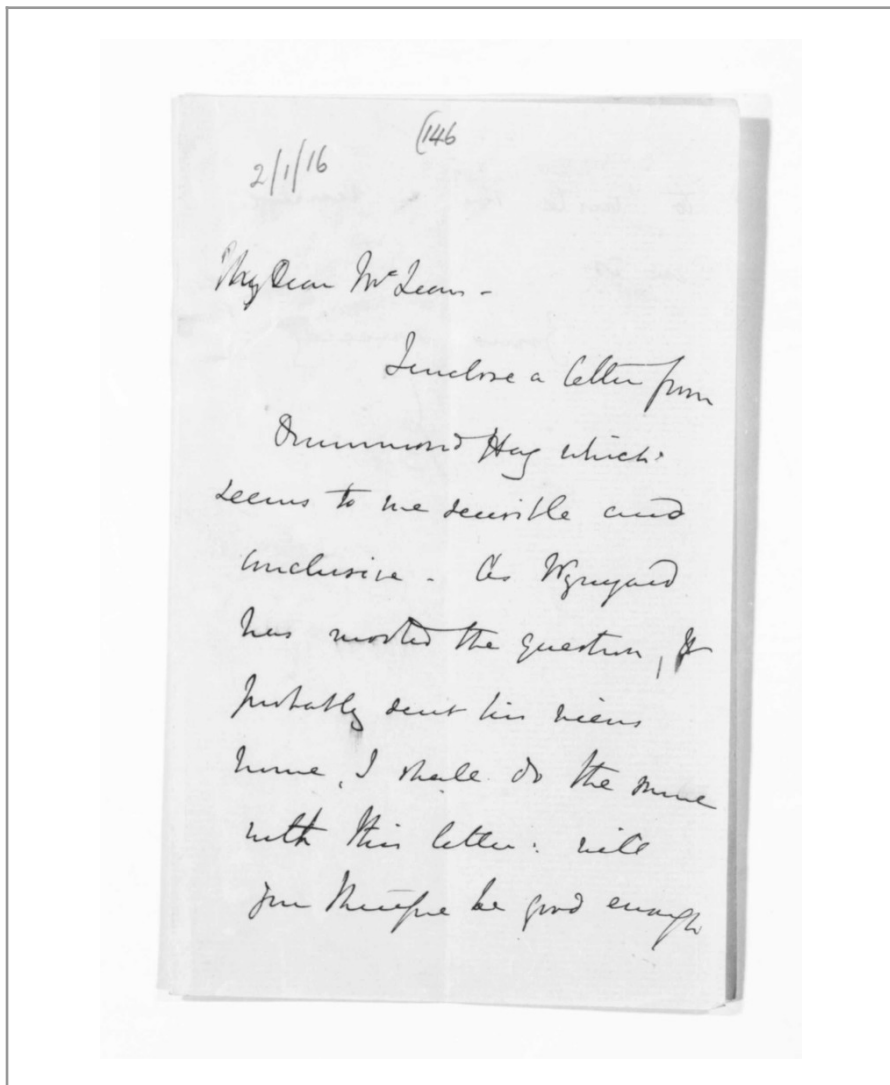 (146
2/1/16
My Dear McLean -
I enclose a letter from
Drummond Hay which
seems to me sensible and
conclusive - As Wynyard
has mooted the question, &
probably sent his views
home, I shall do the same
with this letter: will
you therefore be good enough